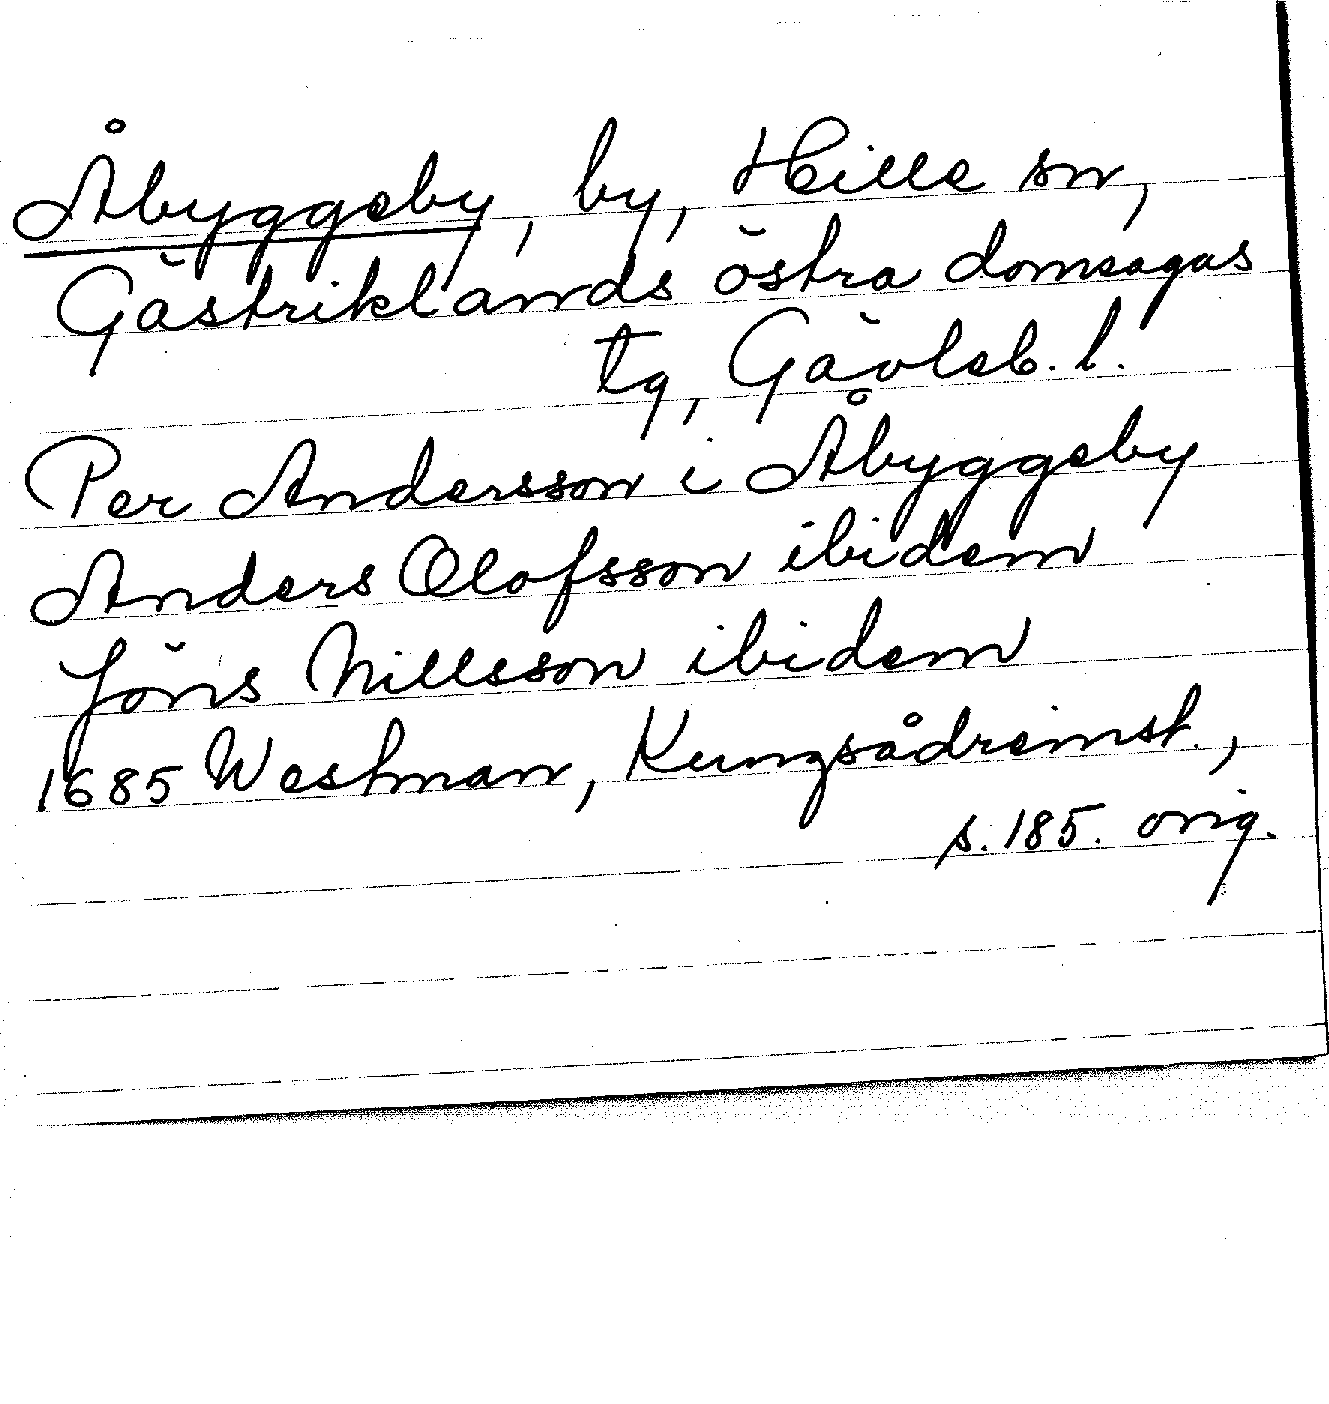 Åbyggeby, by, Hille sn,
Gästriklands östra domsagas
tg, Gävleb. l.
Per Andersson i Åbyggeby
Anders Olofsson ibidem
Jöns Nillsson ibidem
1685 Westman, Kungsådreinst.,
s. 185. orig.